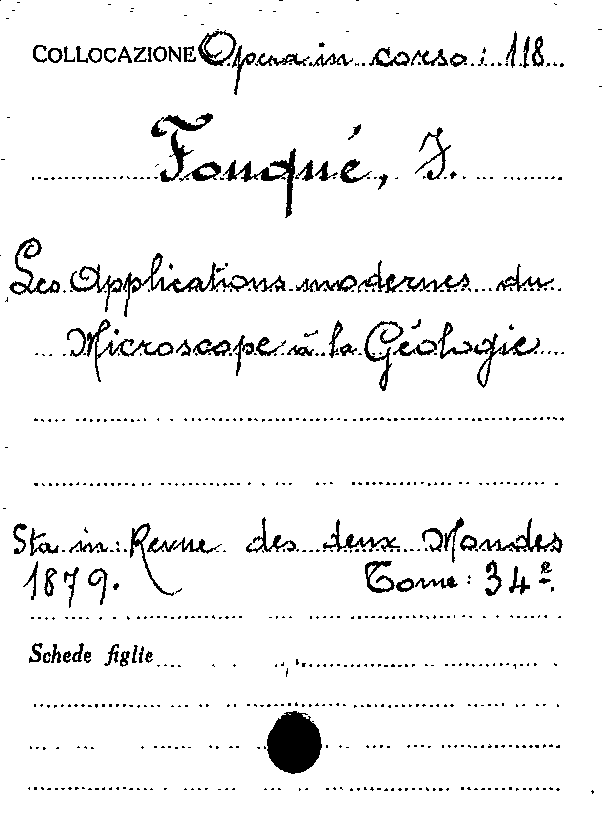 COLLOCAZIONE Opera in corso: 118
Fouqué, F.
Les Applications modernes du
Microscope à la Géologie
Sta in: Revue des deux Mondes
1879. Tome: 34e.
Schede figlie